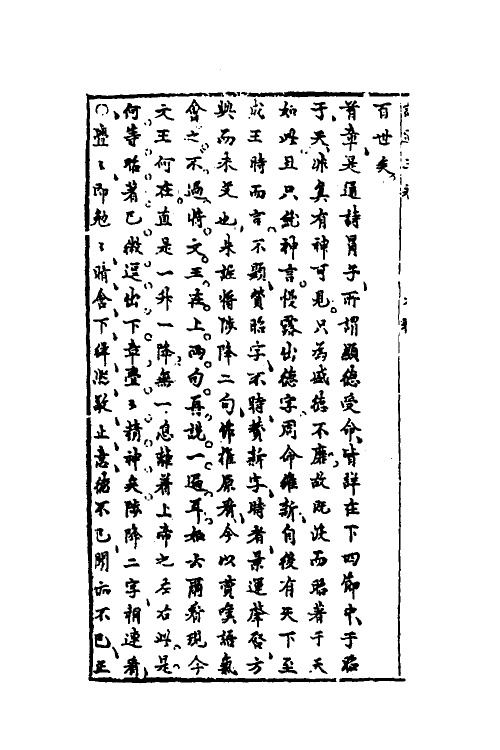 百世矣
首章是通詩冒子所謂顯德受命皆詳在下四節中于昭
于天非真有神可見只為盛德不靡故既沒而昭著于天
如此且只就神言慢露出德字周命維新自後有天下至
成王時而言不顯贊昭字不時贊新字時者景運肇啓方
興而未艾也朱註將陟降二句作推原看今以賣嘆語氣
會之不過將文王在上兩句再說一遍耳如云爾看現今
文王何在直是一升一降無一息離着上帝之左右此是
何等昭著已微逗出下章亹亹精神矣陟降二字相連看
○亹亹即勉勉暗含下緝熙敬止意德不已聞亦不已玉